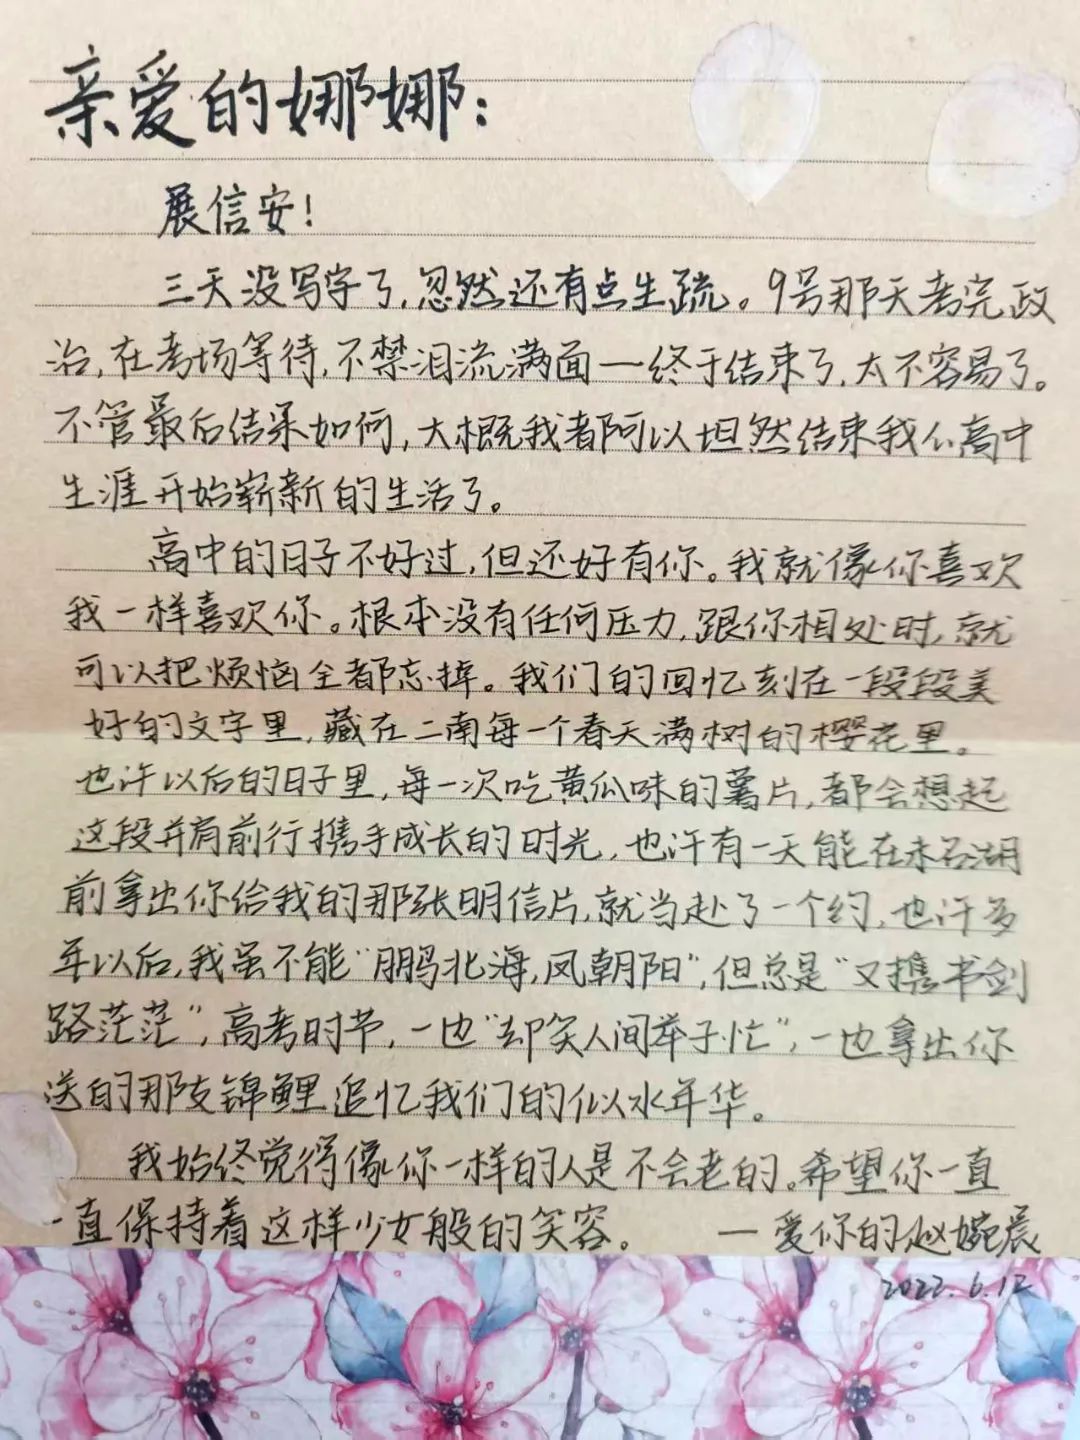 亲爱的娜娜：
展信安！
三天没写字了,忽然还有点生疏。9号那天考完政
治,在考场等待,不禁泪流满面—终于结束了,太不容易了。
不管最后结果如何,大概我都可以坦然结束我的高中
生涯开始崭新的生活了。
高中的日子不好过,但还好有你。我就像你喜欢
我一样喜欢你。根本没有任何压力,跟你相处时,就
可以把烦恼全都忘掉。我们的回忆刻在一段段美
好的文字里,藏在二南每一个春天满树的樱花里。
也许以后的日子里,每一次吃黄瓜味的薯片,都会想起
这段并肩前行携手成长的时光,也许有一天能在未名湖
前拿出你给我的那张明信片,就当赴了一个约,也许多
年以后,我虽不能“鹏北海,凤朝阳”,但总是“又携书剑
路茫茫”,高考时节,一边“却笑人间举子忙”,一边拿出你
送的那支锦鲤追忆我们的似水年华。
我始终觉得像你一样的人是不会老的。希望你一直
一直保持着这样少女般的笑容。 —爱你的赵婉辰
2022.6.12